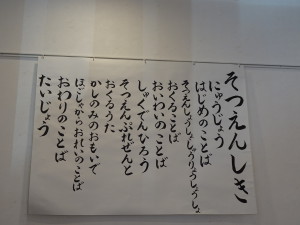 そつえんしき
にゅうじょう
はじめのことば
そつえんしょうしょじゅよ
おくることば
おいわいのことば
しゅくでんひろう
そつえんぷれぜんと
おくるうた
かしのみのおもいで
ほごしゃからおれいのことば
おわりのことば
たいじょう